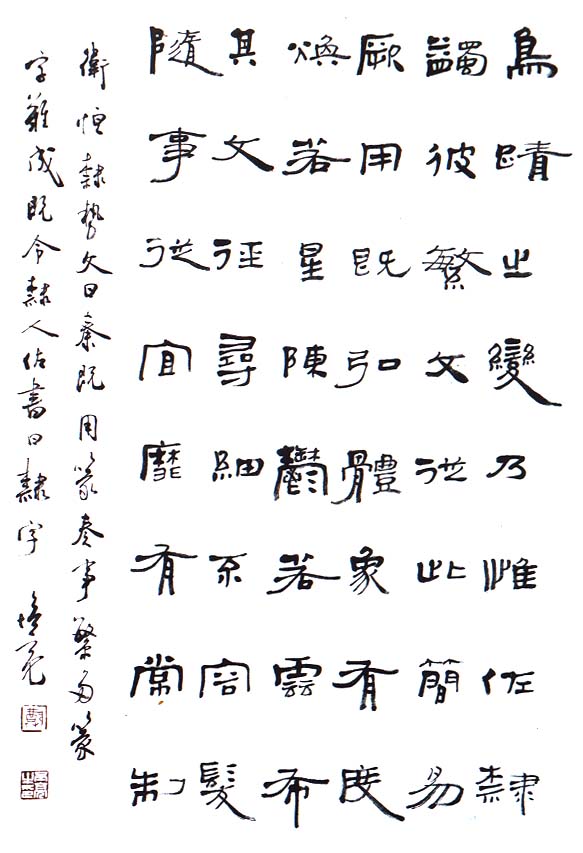 鳥蹟之變乃惟佐隸
蠲彼繁文從此簡易
厥用既弘體象有度
煥若星陳鬱若雲布
其文徑尋細不容髮
隨事從宜靡有常制
衛恒隸勢文曰秦既用篆奏事繁多篆
字難成既令隸人佐書曰隸字 培亮